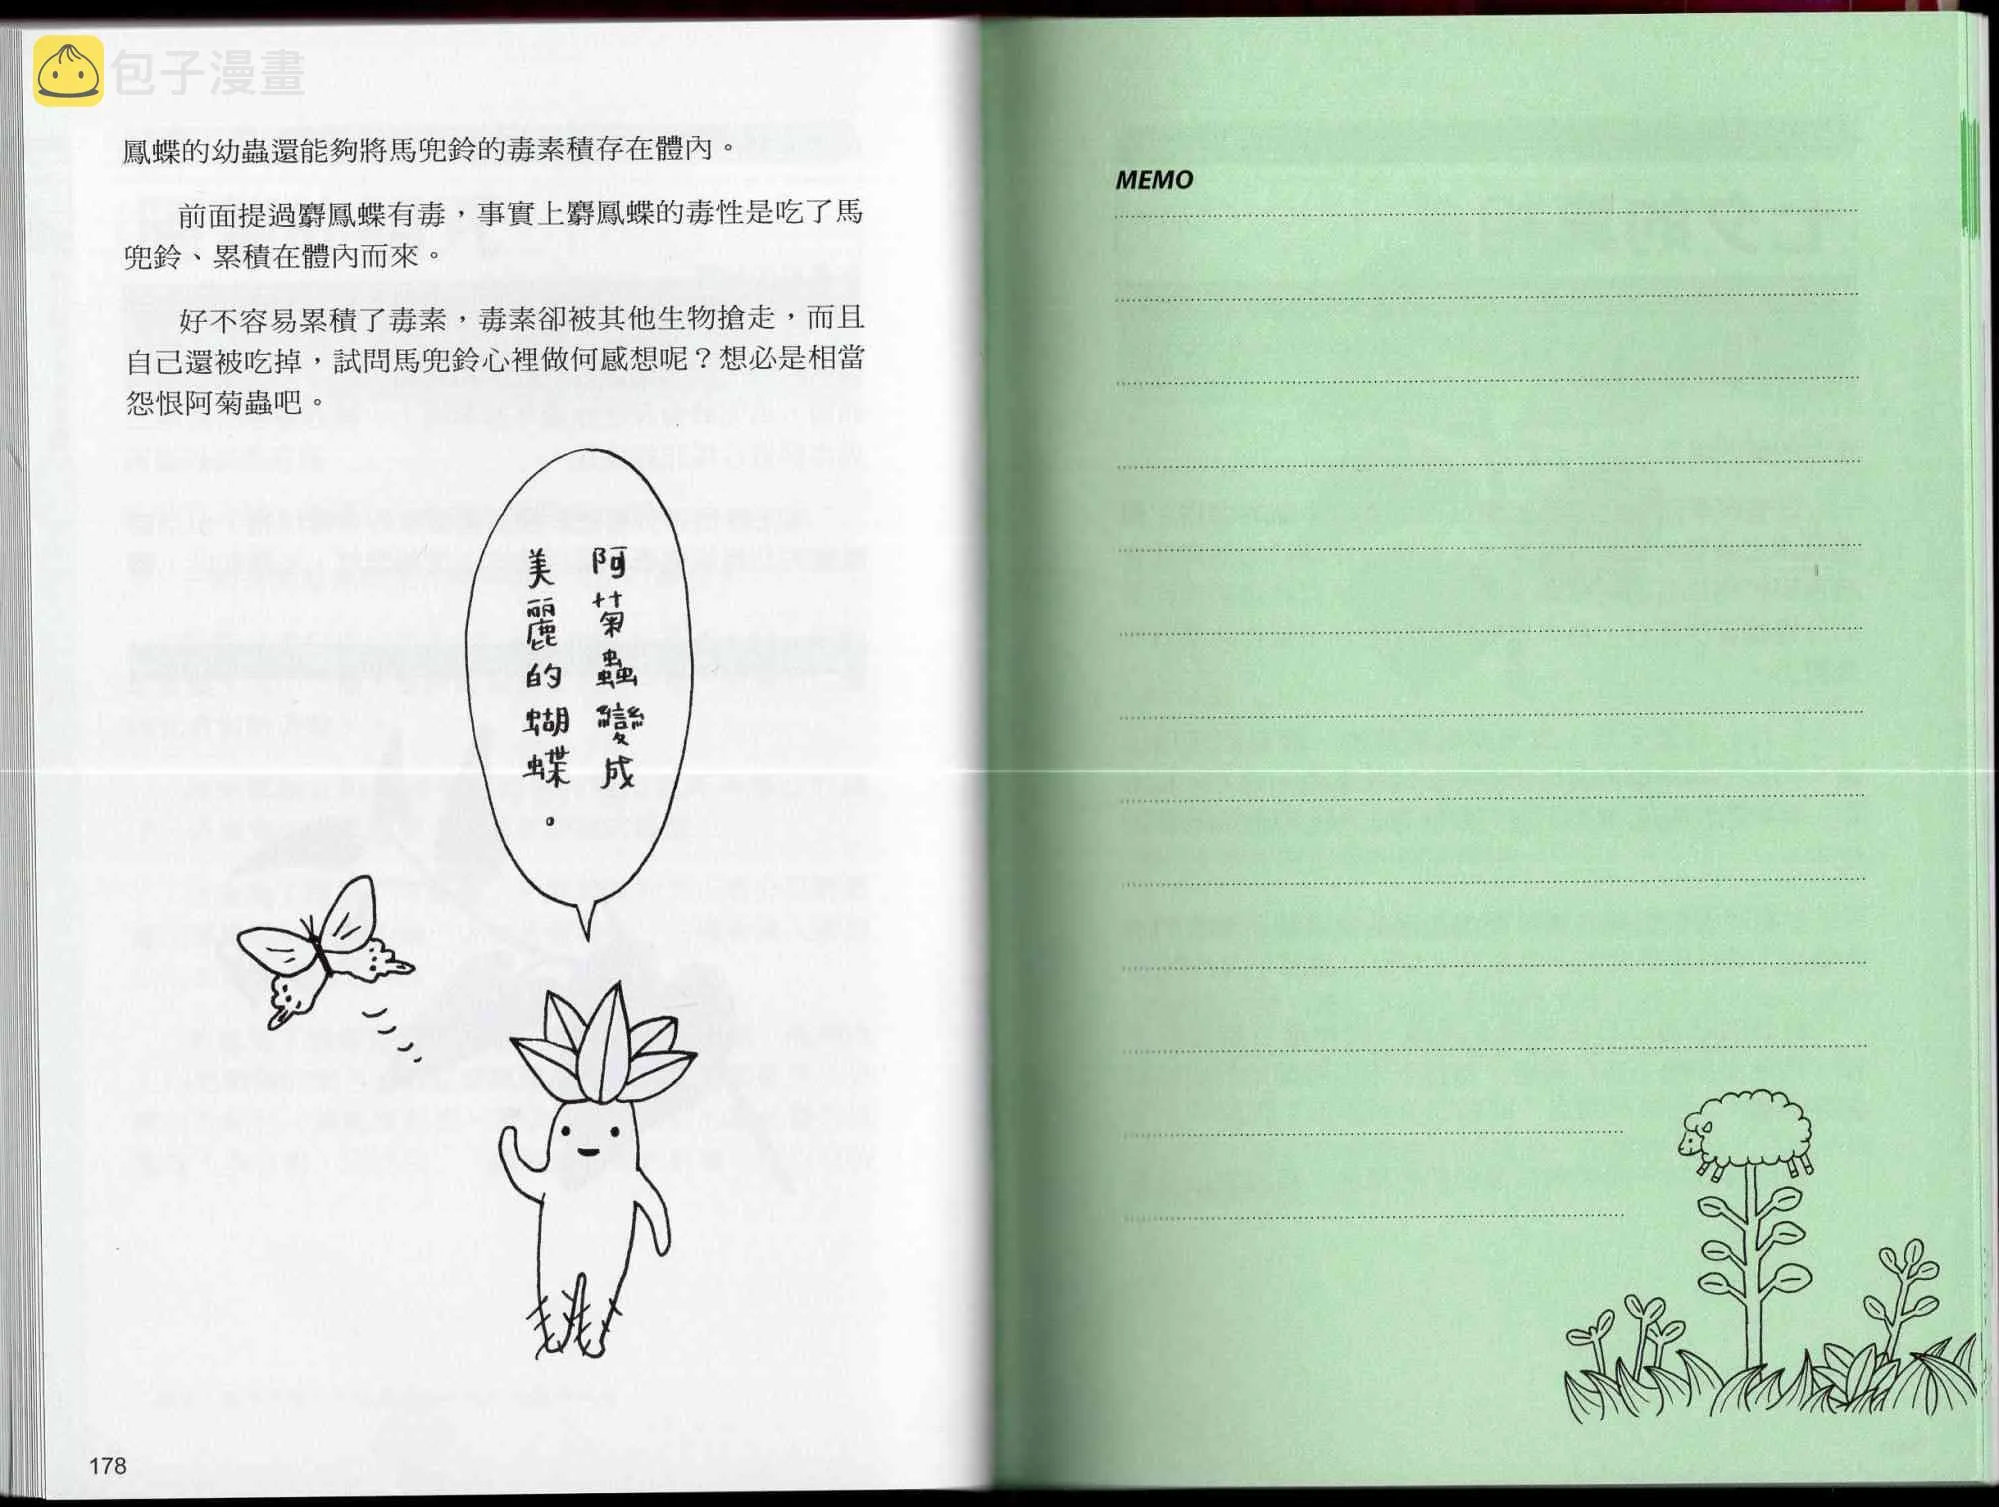 包子漫畫
鳳蝶的幼蟲還能夠將馬兜鈴的毒素積存在體內。
前面提過麝鳳蝶有毒，事實上麝鳳蝶的毒性是吃了馬
兜鈴、累積在體內而來。
好不容易累積了毒素，毒素卻被其他生物搶走，而且
自己還被吃掉，試問馬兜鈴心裡做何感想呢？想必是相當
怨恨阿菊蟲吧。
阿菊蟲變成
美麗的蝴蝶。
178
MEMO